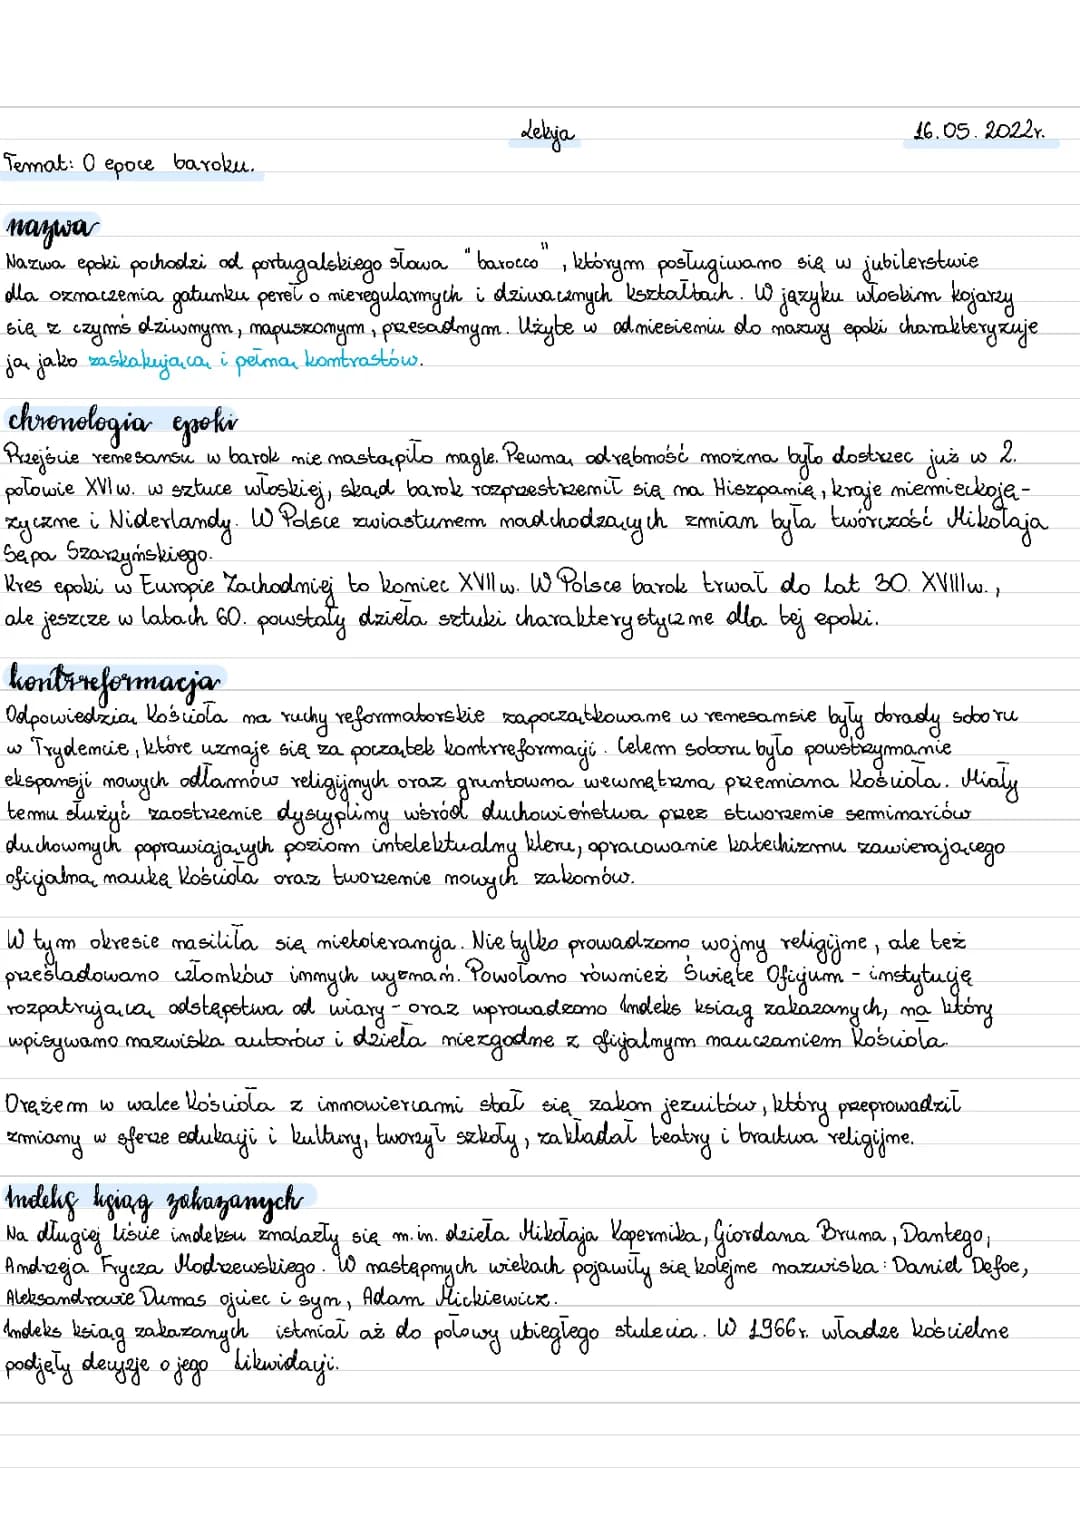 Lekcja 16.05.2022r.
Temat: O epoce baroku.
nazwa
Nazwa epoki pochodzi od portugalskiego słowa "barocco", którym posługiwano się w jubilerstwie
dla oznaczenia gatunku pereł o nieregularnych i dziwacznych kształtach. W języku włoskim kojarzy
się z czymś dziwnym, napuszonym, przesadnym. Użyte w odniesieniu do nazwy epoki charakteryzuje
ją jako zaskakującą i pełną kontrastów.
chronologia epoki
Przejście renesansu w barok nie nastąpiło nagle. Pewną odrębność można było dostrzec już w 2.
połowie XVI w. w sztuce włoskiej, skąd barok rozprzestrzenił się na Hiszpanię, kraje niemieckoję-
zyczne i Niderlandy. W Polsce zwiastunem nadchodzących zmian była twórczość Mikołaja
Sępa Szarzyńskiego.
Kres epoki w Europie Zachodniej to koniec XVII w. W Polsce barok trwał do lat 30. XVIII w.,
ale jeszcze w latach 60. powstały dzieła sztuki charakterystyczne dla tej epoki.
kontrreformacja
Odpowiedzią Kościoła na ruchy reformatorskie zapoczątkowane w renesansie były obrady soboru
w Trydencie, które uznaje się za początek kontrreformacji. Celem soboru było powstrzymanie
ekspansji nowych odłamów religijnych oraz gruntowna wewnętrzna przemiana Kościoła. Miały
temu służyć zaostrzenie dyscypliny wśród duchowieństwa przez stworzenie seminariów
duchownych poprawiających poziom intelektualny kleru, opracowanie katechizmu zawierającego
oficjalną naukę Kościoła oraz tworzenie nowych zakonów.
W tym okresie nasiliła się nietolerancja. Nie tylko prowadzono wojny religijne, ale też
prześladowano członków innych wyznań. Powołano również Święte Oficjum - instytucję
rozpatrującą odstępstwa od wiary - oraz wprowadzono Indeks ksiąg zakazanych, na który
wpisywano nazwiska autorów i dzieła niezgodne z oficjalnym nauczaniem Kościoła.
Orężem w walce Kościoła z innowiercami stał się zakon jezuitów, który przeprowadził
zmiany w sferze edukacji i kultury, tworzył szkoły, zakładał teatry i bractwa religijne.
Indeks ksiąg zakazanych
Na długiej liście indeksu znalazły się m.in. dzieła Mikołaja Kopernika, Giordana Bruna, Dantego,
Andrzeja Frycza Modrzewskiego. W następnych wiekach pojawiły się kolejne nazwiska: Daniel Defoe,
Aleksandrowie Dumas ojciec i syn, Adam Mickiewicz.
Indeks ksiąg zakazanych istniał aż do połowy ubiegłego stulecia. W 1966r. władze kościelne
podjęły decyzje o jego likwidacji.